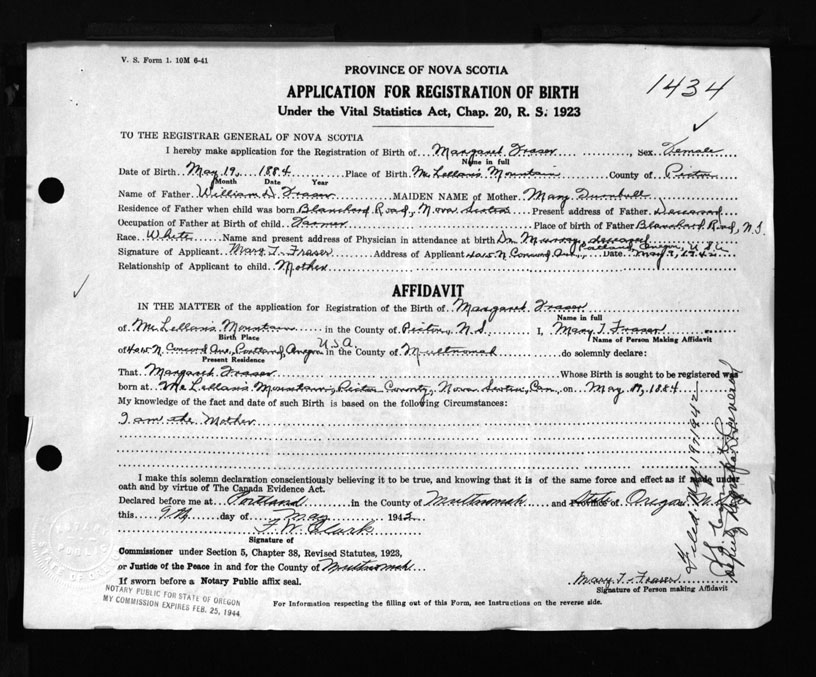 V. S. Form 1. 10M 6-41
PROVINCE OF NOVA SCOTIA
1434
APPLICATION FOR REGISTRATION OF BIRTH
Under the Vital Statistics Act, Chap. 20, R. S. 1923
TO THE REGISTRAR GENERAL OF NOVA SCOTIA
I hereby make application for the Registration of Birth of Margaret Fraser, Sex Female
Name in full
Date of Birth May 19, 1884 Place of Birth McLellan's Mountain County of Pictou
Month Date Year
Name of Father William D. Fraser MAIDEN NAME of Mother Mary Turnbull
Residence of Father when child was born Blanchard Road, Nova Scotia Present address of Father Deceased
Occupation of Father at Birth of child Farmer Place of birth of Father Blanchard Road, N.S.
Race White Name and present address of Physician in attendance at birth Dr. Murray, deceased
Portland, Oregon, U.S.A.
Signature of Applicant Mary T. Fraser Address of Applicant N. Ave., Date May 9, 1942
Relationship of Applicant to child Mother
AFFIDAVIT
IN THE MATTER of the application for Registration of the Birth of Margaret Fraser
Name in full
of McLellan's Mountain in the County of Pictou, N.S. I, Mary T. Fraser
Birth Place Name of Person Making Affidavit
U.S.A.
of N. Ave, Portland, Oregon in the County of Multnomah do solemnly declare:
Present Residence
That Margaret Fraser Whose Birth is sought to be registered was
born at McLellan's Mountain, Pictou County, Nova Scotia, Can. on May 19, 1884
My knowledge of the fact and date of such Birth is based on the following Circumstances:
I am the Mother
I make this solemn declaration conscientiously believing it to be true, and knowing that it is of the same force and effect as if made under
oath and by virtue of The Canada Evidence Act.
Declared before me at Portland in the County of Multnomah and State of Oregon
this 9th day of May 1942
F. W. Clark
Signature of
Commissioner under Section 5, Chapter 38, Revised Statutes, 1923,
or Justice of the Peace in and for the County of Multnomah
If sworn before a Notary Public affix seal.
Mary T. Fraser
Signature of Person making Affidavit
NOTARY PUBLIC FOR STATE OF OREGON
MY COMMISSION EXPIRES FEB. 25, 1944
For Information respecting the filling out of this Form, see Instructions on the reverse side.
Filed May 19, 1942
Deputy Registrar General